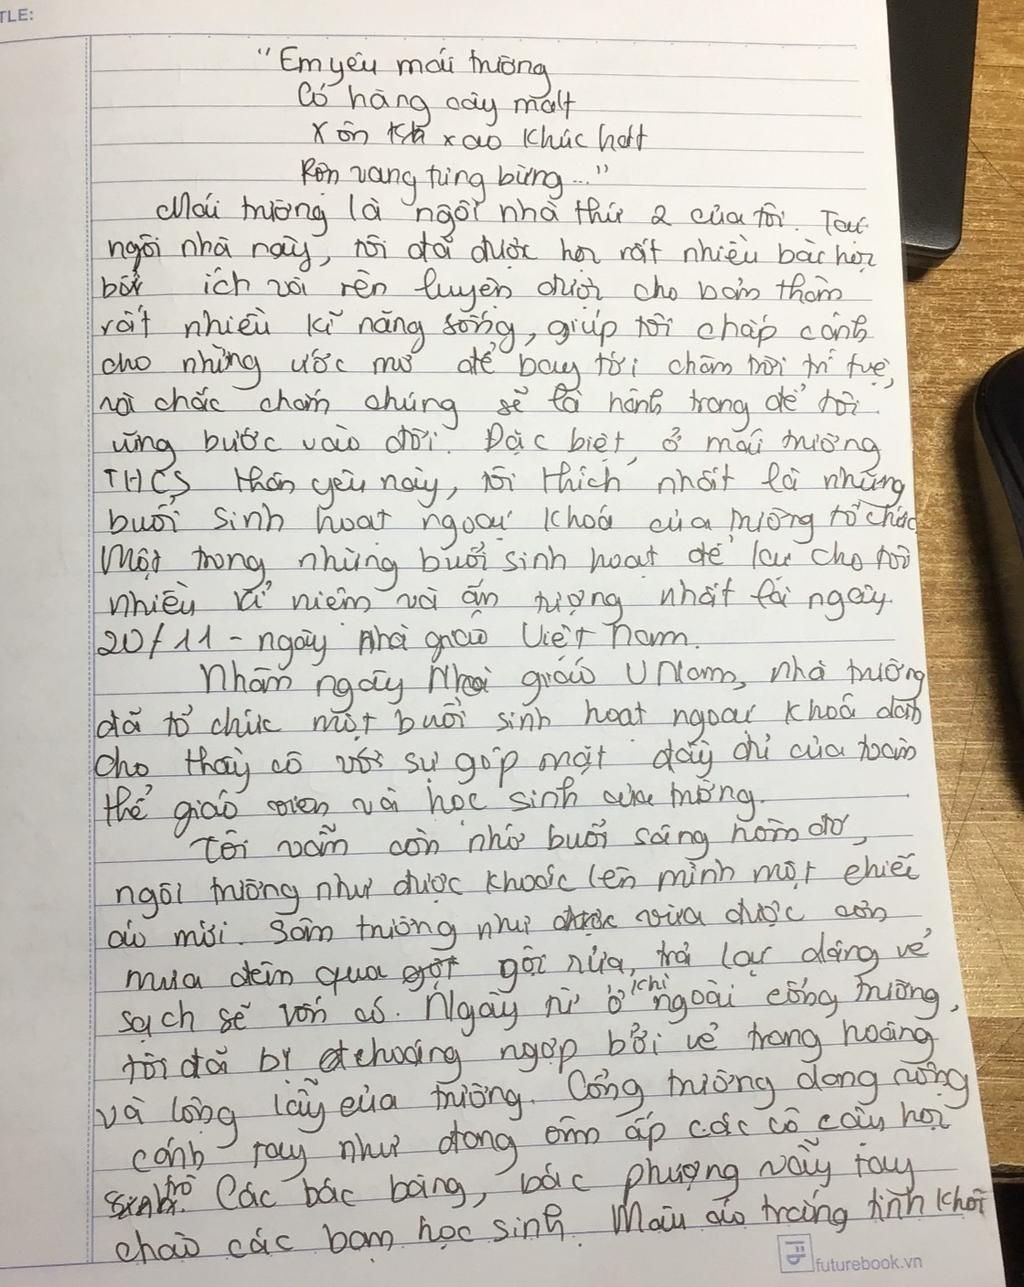 TLE:
"Em yêu mái trường
Có hàng cây mát
Xôn xao khúc hát
Rộn vang tưng bừng..."
Mái trường là ngôi nhà thứ 2 của tôi. Tại
ngôi nhà này, tôi đã được học rất nhiều bài học
bổ ích và rèn luyện được cho bản thân
rất nhiều kĩ năng sống, giúp tôi chắp cánh
cho những ước mơ để bay tới chân trời trí tuệ,
và chắc chắn chúng sẽ là hành trang để tôi
vững bước vào đời. Đặc biệt, ở mái trường
THCS thân yêu này, tôi thích nhất là những
buổi sinh hoạt ngoại khoá của trường tổ chức
Một trong những buổi sinh hoạt để lại cho tôi
nhiều kỉ niệm và ấn tượng nhất là ngày
20/11 - ngày nhà giáo Việt Nam.
Nhân ngày Nhà giáo V Nam, nhà trường
đã tổ chức một buổi sinh hoạt ngoại khoá dành
cho thầy cô với sự góp mặt đầy đủ của toàn
thể giáo viên và học sinh của trường.
Tôi vẫn còn nhớ buổi sáng hôm đó,
ngôi trường như được khoác lên mình một chiếc
áo mới. Sân trường như vừa được cơn
mưa đêm qua gột rửa, trả lại dáng vẻ
sạch sẽ vốn có. Ngay từ khi ở ngoài cổng trường,
tôi đã bị choáng ngợp bởi vẻ trang hoàng
và lộng lẫy của trường. Cổng trường dang rộng
cánh tay như đang ôm ấp các cô cậu học
trò. Các bác bàng, bác phượng vẫy tay
chào các bạn học sinh. Màu áo trắng tinh khôi
futurebook.vn